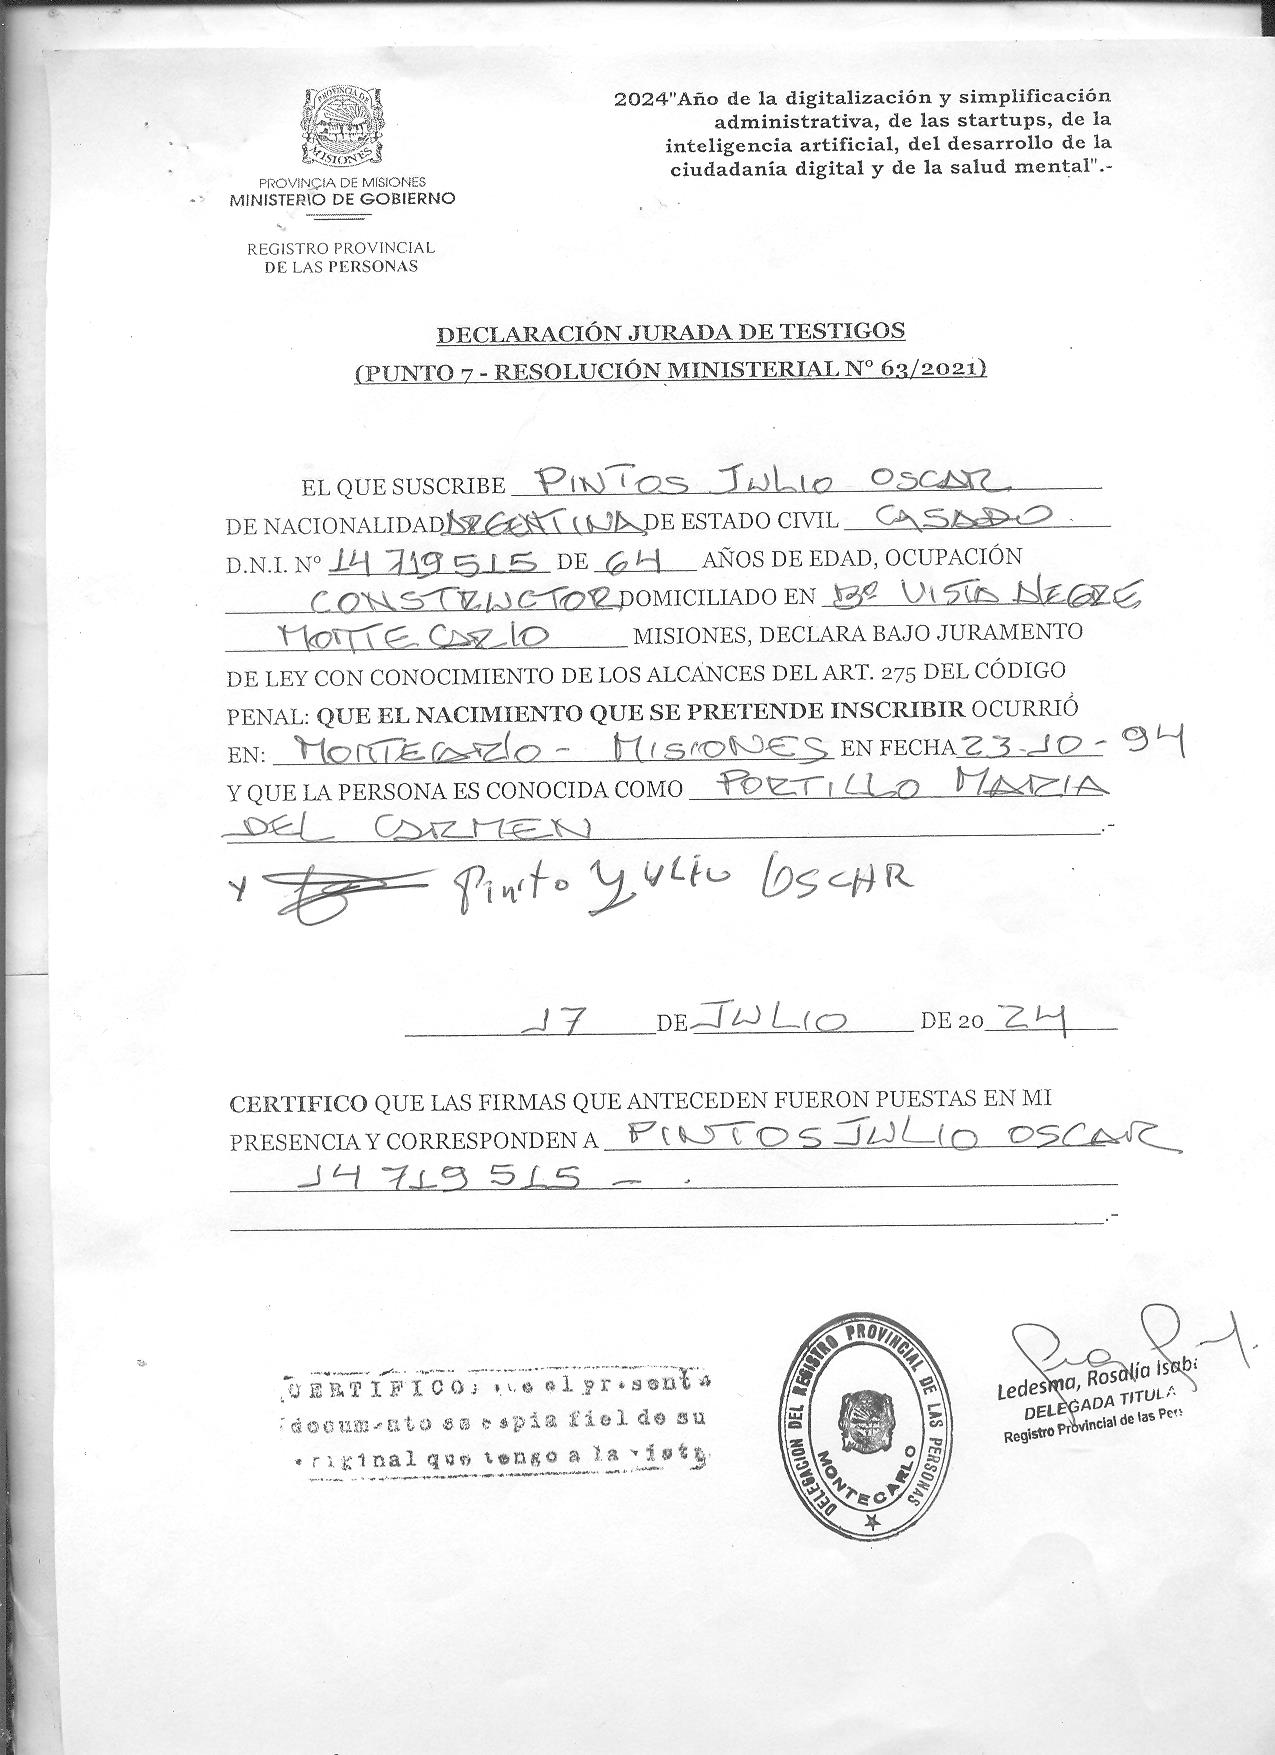 PROVINCIA DE
MISIONES
PROVINCIA DE MISIONES
MINISTERIO DE GOBIERNO
REGISTRO PROVINCIAL
DE LAS PERSONAS
2024"Año de la digitalización y simplificación
administrativa, de las startups, de la
inteligencia artificial, del desarrollo de la
ciudadanía digital y de la salud mental".-
DECLARACIÓN JURADA DE TESTIGOS
(PUNTO 7 - RESOLUCIÓN MINISTERIAL N° 63/2021)
EL QUE SUSCRIBE PINTOS JULIO OSCAR
DE NACIONALIDAD ARGENTINA, DE ESTADO CIVIL CASADO
D.N.I. N° 14 719 515 DE 64 AÑOS DE EDAD, OCUPACIÓN
CONSTRUCTOR DOMICILIADO EN Bº VISTA NEGRE
MONTE CARLO MISIONES, DECLARA BAJO JURAMENTO
DE LEY CON CONOCIMIENTO DE LOS ALCANCES DEL ART. 275 DEL CÓDIGO
PENAL: QUE EL NACIMIENTO QUE SE PRETENDE INSCRIBIR OCURRIÓ
EN: MONTECARLO - MISIONES EN FECHA 23-10-94
Y QUE LA PERSONA ES CONOCIDA COMO PORTILLO MARIA
DEL CARMEN .-
Pinto YULIO OSCAR
17 DE JULIO DE 2024
CERTIFICO QUE LAS FIRMAS QUE ANTECEDEN FUERON PUESTAS EN MI
PRESENCIA Y CORRESPONDEN A PINTOS JULIO OSCAR
14 719 515 - .
.-
CERTIFICO: que el presente
documento es copia fiel de su
original que tengo a la vista
DELEGACION DEL REGISTRO PROVINCIAL DE LAS PERSONAS
MONTECARLO
Ledesma, Rosalía Isab
DELEGADA TITULA
Registro Provincial de las Per